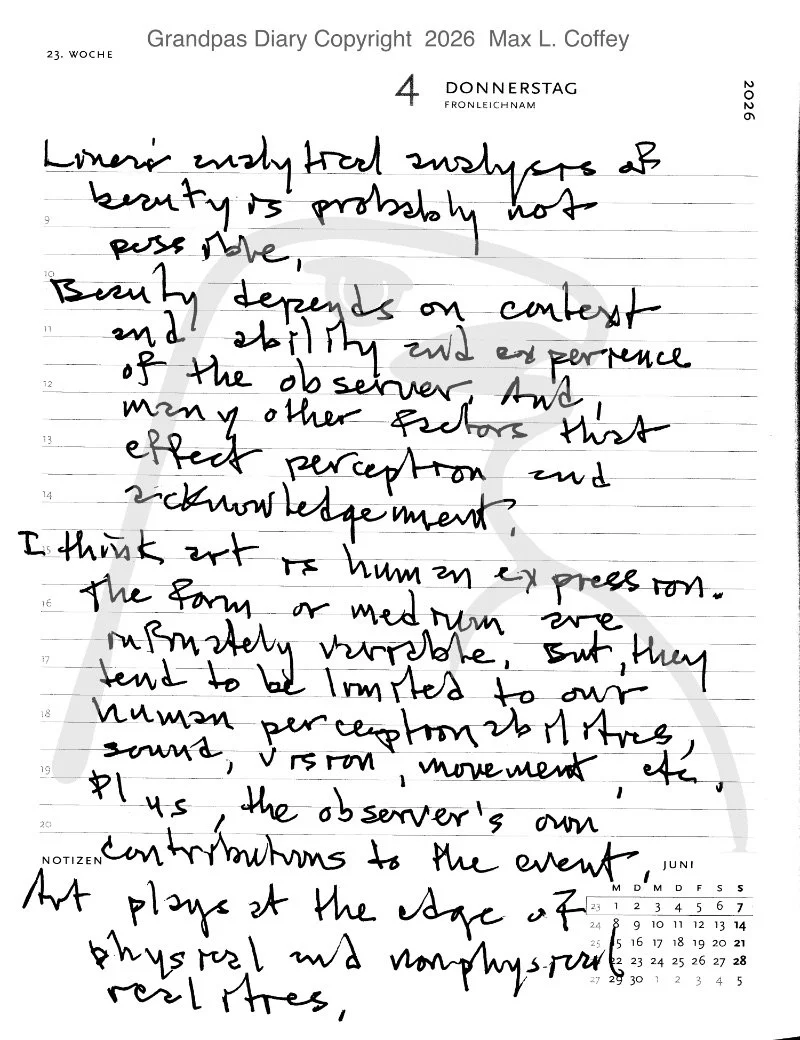 Grandpas Diary Copyright 2026 Max L. Coffey
23. WOCHE
4 DONNERSTAG
FRONLEICHNAM
2026
Linear analytical analysis of
beauty is probably not
possible.
Beauty depends on context
and ability and experience
of the observer. And,
many other factors that
effect perception and
acknowledgement.
I think art is human expression.
The form or medium are
infinately variable. But, they
tend to be limited to our
human perception abilities,
sound, vision, movement, etc.
Plus, the observer's own
contributions to the event.
Art plays at the edge of
physical and nonphysical
realities.
9
10
11
12
13
14
15
16
17
18
19
20
NOTIZEN
JUNI
M D M D F S S
23 1 2 3 4 5 6 7
24 8 9 10 11 12 13 14
25 15 16 17 18 19 20 21
22 23 24 25 26 27 28
27 29 30 1 2 3 4 5